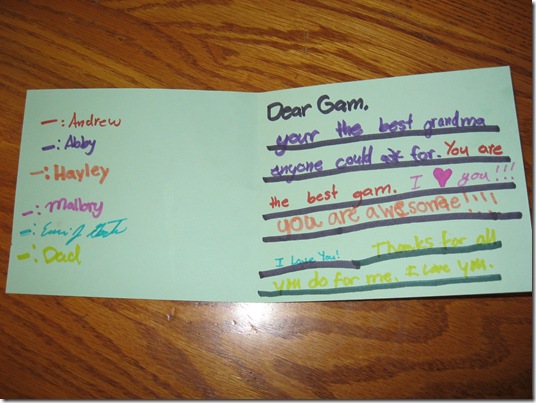 -: Andrew
-: Abby
-: Hayley
-: Mallory
-:
-: Dad
Dear Gam,
your the best grandma
anyone could ask for. You are
the best gam. I ♥ you!!!
you are awesome!!!!
I Love You! Thanks for all
you do for me. I love you.